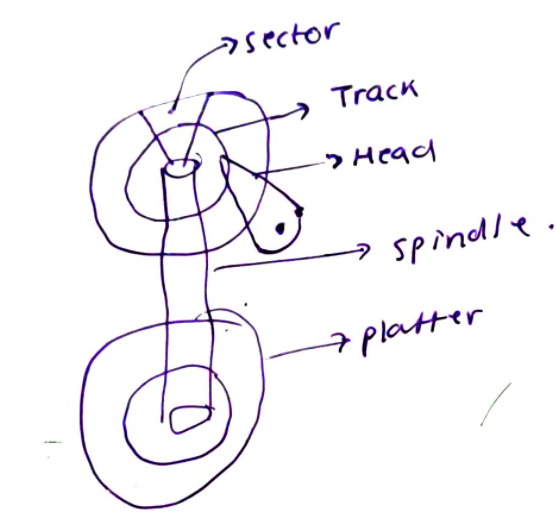 sector
Track
Head
spindle.
platter